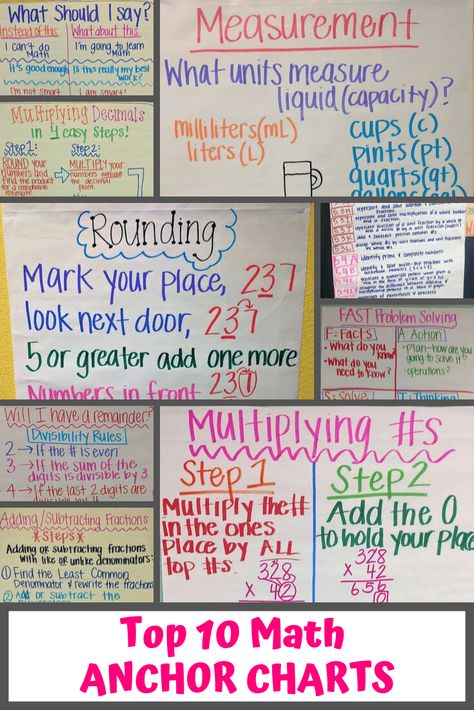 What Should I Say?
Instead of this What about this
I can't do Math I'm going to learn Math
It's good enough Is this really my best work?
I'm not smart I am smart!
Multiplying Decimals
in 4 easy Steps!
Step 1: Step 2:
ROUND your MULTIPLY your
numbers and numbers without
find the product the decimal
for a reasonable point
estimate
Measurement
What units measure
liquid (capacity)?
milliliters (mL) cups (c)
liters (L) pints (pt)
quarts (qt)
gallons (gal)
Rounding
Mark your place, 237
look next door, 237
5 or greater add one more
Numbers in front 237
5.4A identify prime & composite numbers
5.4B
5.4C
FAST Problem Solving
F: Facts A Action
• What do you know? • Plan-how are you going to solve it?
• What do you need to know? • operations?
S: Solve T: Thinking
Will I have a remainder?
Divisibility Rules
2 → If the # is even
3 → If the sum of the
digits is divisible by 3
4 → If the last 2 digits are
divisible by 4
Adding/Subtracting Fractions
* Steps *
Adding or subtracting fractions
with like or unlike denominators:
① Find the Least Common
Denominator & rewrite the fractions
② Add or subtract the
Multiplying #s
Step 1
Multiply the #
in the ones
Place by ALL
top #s.
328
x 42
Step 2
Add the 0
to hold your place
328
x 42
656
0
Top 10 Math
ANCHOR CHARTS